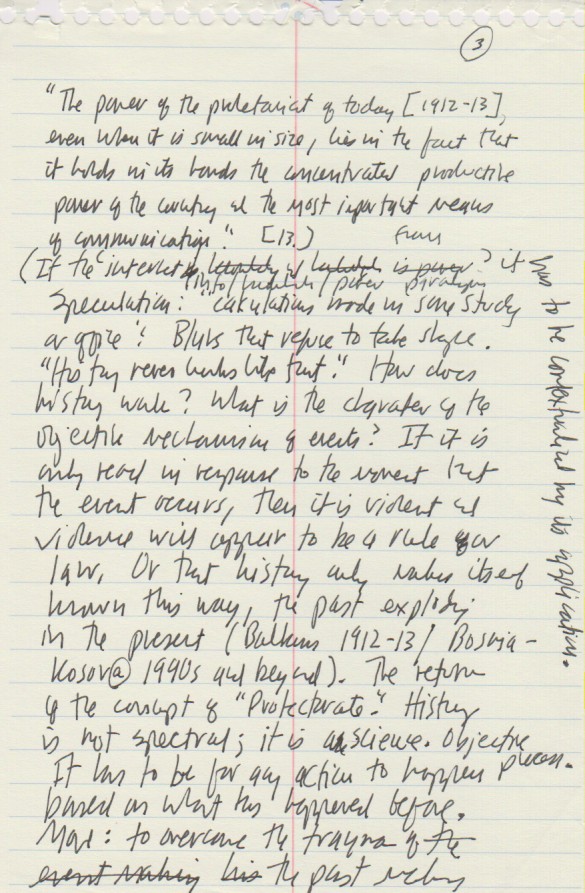 3
"The power of the proletariat of today [1912-13],
even when it is small in size, lies in the fact that
it holds in its hands the concentrated productive
power of the country and the most important means
of communication." [13.)
from
(If the internet is power? it
paradigm
Speculation: "calculations made in some study
or office". Blurs that refuse to take shape.
"History never works like that." How does
history work? What is the character of the
objective mechanism of events? If it is
only read in response to the moment that
the event occurs, then it is violent and
violence will appear to be a rule or
law. Or that history only makes itself
known this way, the past exploding
in the present (Balkans 1912-13/Bosnia-
Kosov@ 1990s and beyond). The return
of the concept of "Protectorate." History
is not spectral; it is a science. Objective
process.
It has to be for any action to happen
based on what has happened before.
to overcome the trauma of the
event making the past
has to be contextualized by its application.